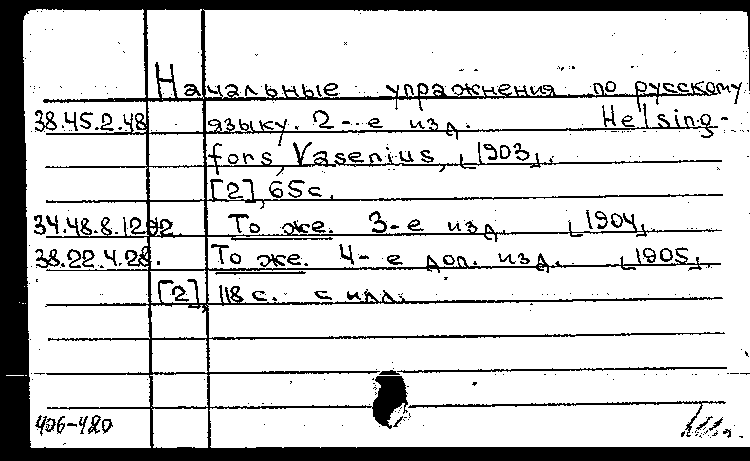 Начальные упражнения по русскому
38.45.2.48 языку. 2-е изд. Helsing-
fors, Vasenius, [1903].
[2], 65 с.
34.48.8.1292. То же. 3-е изд. [1904]
38.22.4.28. То же. 4-е доп. изд. [1905]
[2], 118 с. с илл.
406-480